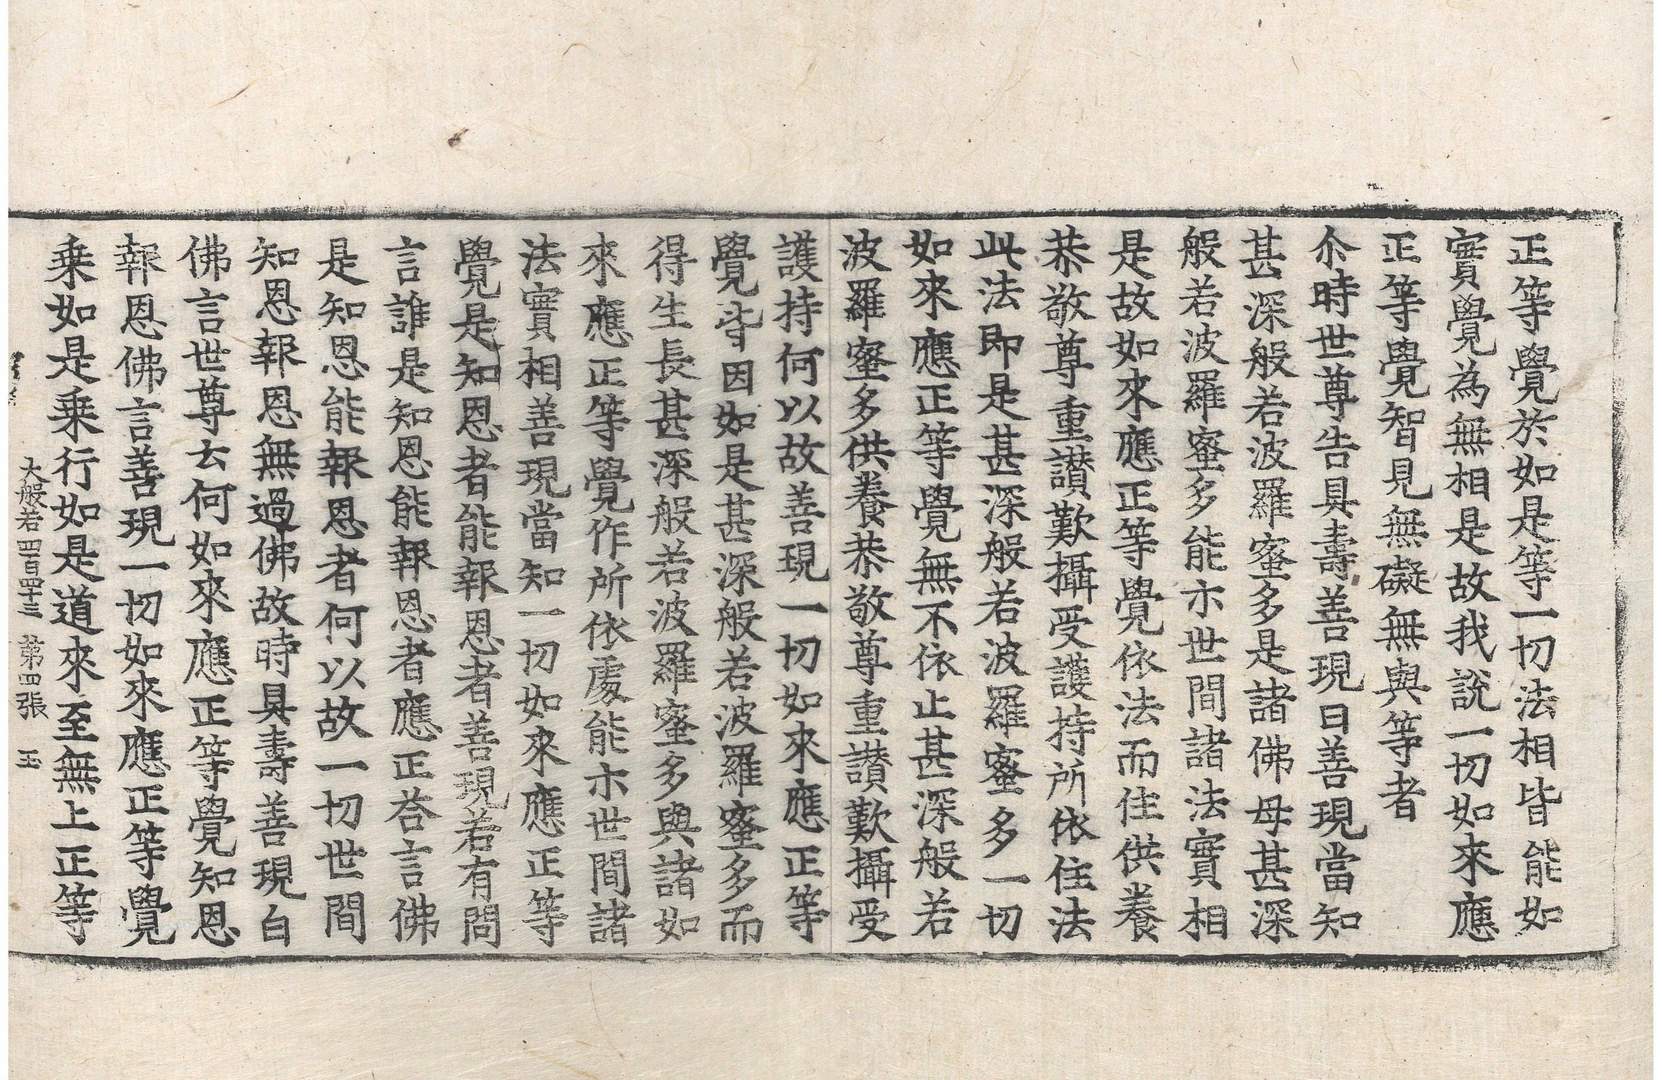 正等覺於如是等一切法相皆能如
實覺為無相是故我說一切如來應
正等覺智見無礙無與等者
尒時世尊告具壽善現曰善現當知
甚深般若波羅蜜多是諸佛母甚深
般若波羅蜜多能示世間諸法實相
是故如來應正等覺依法而住供養
恭敬尊重讃歎攝受護持所依住法
此法即是甚深般若波羅蜜多一切
如來應正等覺無不依止甚深般若
波羅蜜多供養恭敬尊重讃歎攝受
護持何以故善現一切如來應正等
覺皆因如是甚深般若波羅蜜多而
得生長甚深般若波羅蜜多與諸如
來應正等覺作所依處能示世間諸
法實相善現當知一切如來應正等
覺是知恩者能報恩者善現若有問
言誰是知恩能報恩者應正荅言佛
是知恩能報恩者何以故一切世間
知恩報恩無過佛故時具壽善現白
佛言世尊云何如來應正等覺知恩
報恩佛言善現一切如來應正等覺
乗如是乗行如是道來至無上正等
大般若四百四十三 第四張 玉